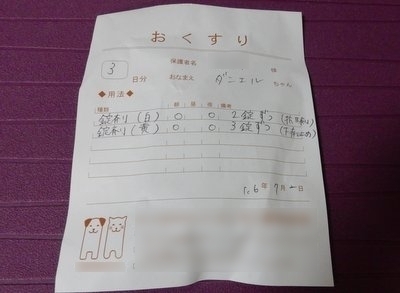 おくすり
保護者名 様
3 日分 おなまえ ダンエル ちゃん
◆用法◆
種類 朝 昼 夜 備考
錠剤(白) ○ ○ 2錠ずつ
錠剤(黄) ○ ○ 3錠ずつ
6年 7月 日